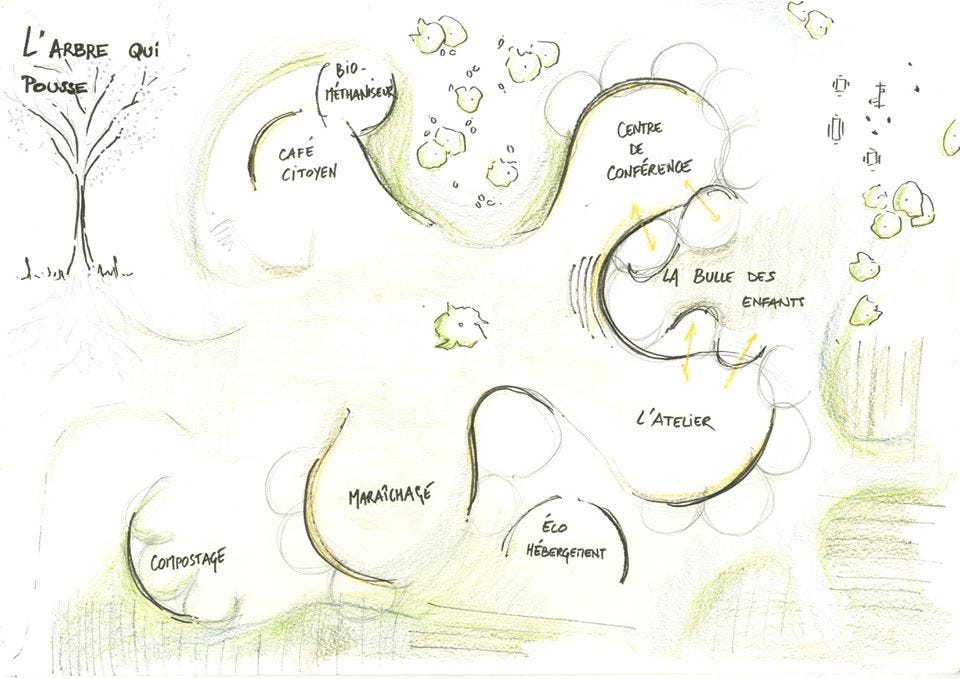 L'ARBRE QUI
POUSSE
BIO-
MÉTHANISEUR
CAFÉ
CITOYEN
CENTRE
DE
CONFÉRENCE
LA BULLE DES
ENFANTS
L'ATELIER
MARAÎCHAGE
ÉCO
HÉBERGEMENT
COMPOSTAGE